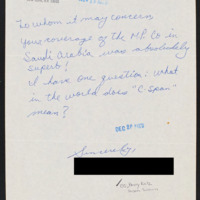 To whom it may concern
Your coverage of the M.P. Co in
Saudi Arabia was absolutely
superb!
I have one question: what
in the world does "C-span"
mean?
DEC 27 1990
Sincerely,